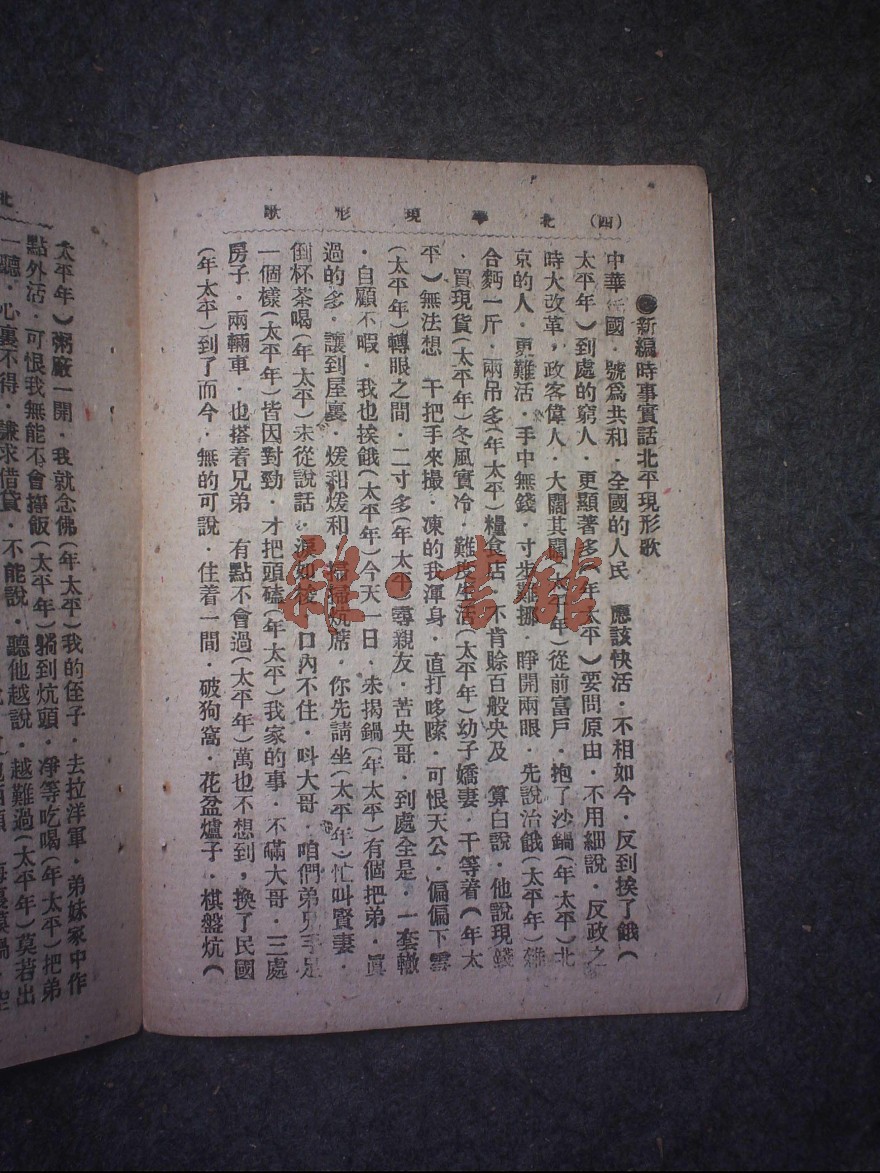 (四) 北平現形歌
新編時事實話北平現形歌
中華 國．號爲共和．全國的人民 應該快活．不相如今．反到挨了餓(
太平年)到處的窮人．更顯著多(年太平)要問原由．不用細說．反政之
時大改革，政客偉人．大闊其闊(太平年)從前富戶．抱了沙鍋(年太平)北
京的人．更難活．手中無錢．寸步難挪．睜開兩眼．先說治餓(太平年)雜
合麪一斤．兩吊多(年太平)糧食店 不肯賒百般央及 算白說．他說現錢
．買現貨(太平年)冬風實冷．難 生活(太平年)幼子嬌妻．干等着(年太
平)無法想 干把手來撮．凍的我渾身．直打哆嗦．可恨天公．偏偏下雪
(太平年)轉眼之間．二寸多(年太平)尋親友．苦央哥．到處全是．一套轍
．自顧不暇．我也挨餓(太平年)今天一日．未揭鍋(年太平)有個把弟．眞
過的多．讓到屋裏．煖和煖和．掃掃炕蓆．你先請坐(太平年)忙叫賢妻．
倒杯茶喝(年太平)未從說話．淚如 口內不住．呌大哥．咱們弟兄手足
一個樣(太平年)皆因對勁．才把頭磕(年太平)我家的事．不瞞大哥．三處
房子．兩輛車．也搭着兄弟 有點不會過(太平年)萬也不想到，換了民國
(年太平)到了而今．無的可說．住着一間．破狗窩．花盆爐子．棋盤炕(
北
太平年)粥廠一開．我就念佛(年太平)我的侄子．去拉洋軍．弟妹家中作
點外活．可恨我無能不會掙飯(太平年)躺到炕頭．凈等吃喝(年太平)把弟
一聽．心裏不得．謙求借貸．不能說．聽他越說．越難過(太平年)莫若出